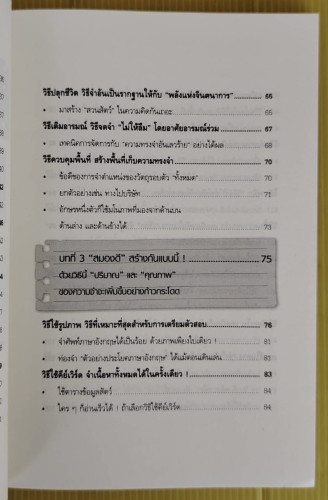 วิธีปลุกชีวิต วิธีจำอันเป็นรากฐานให้กับ “พลังแห่งจินตนาการ” 65
• มาสร้าง “สวนสัตว์” ในความคิดกันเถอะ 65
วิธีเติมอารมณ์ วิธีจดจำ “ไม่ให้ลืม” โดยอาศัยอารมณ์ร่วม 67
• เทคนิคการจัดการกับ “ความทรงจำอันเลวร้าย” อย่างได้ผล 68
วิธีควบคุมพื้นที่ สร้างพื้นที่เก็บความทรงจำ 70
• ข้อดีของการจำตำแหน่งของวัตถุรอบตัว “ทั้งหมด” 70
• ยกตัวอย่างเช่น ทางไปบริษัท 71
• อักษรหนึ่งตัวก็ใช้มโนภาพที่มองจากด้านบน
ด้านล่าง และด้านข้างได้ 73
บทที่ 3 “สมองดี” สร้างกันแบบนี้ ! 75
ด้วยวิธีนี้ “ปริมาณ” และ “คุณภาพ”
ของความจำจะเพิ่มขึ้นอย่างก้าวกระโดด
วิธีใช้รูปภาพ วิธีที่เหมาะที่สุดสำหรับการเตรียมตัวสอบ 76
• จำศัพท์ภาษาอังกฤษได้เป็นร้อย ด้วยภาพเพียงใบเดียว ! 81
• ท่องจำ “ตัวอย่างประโยคภาษาอังกฤษ” ได้แม้ตอนเดินเล่น 81
วิธีใช้คีย์เวิร์ด จำเนื้อหาทั้งหมดได้ในครั้งเดียว ! 83
• ใช้ตารางข้อมูลสัตว์ 84
• ใคร ๆ ก็อ่านเร็วได้ ! ถ้าเลือกวิธีใช้คีย์เวิร์ด 94